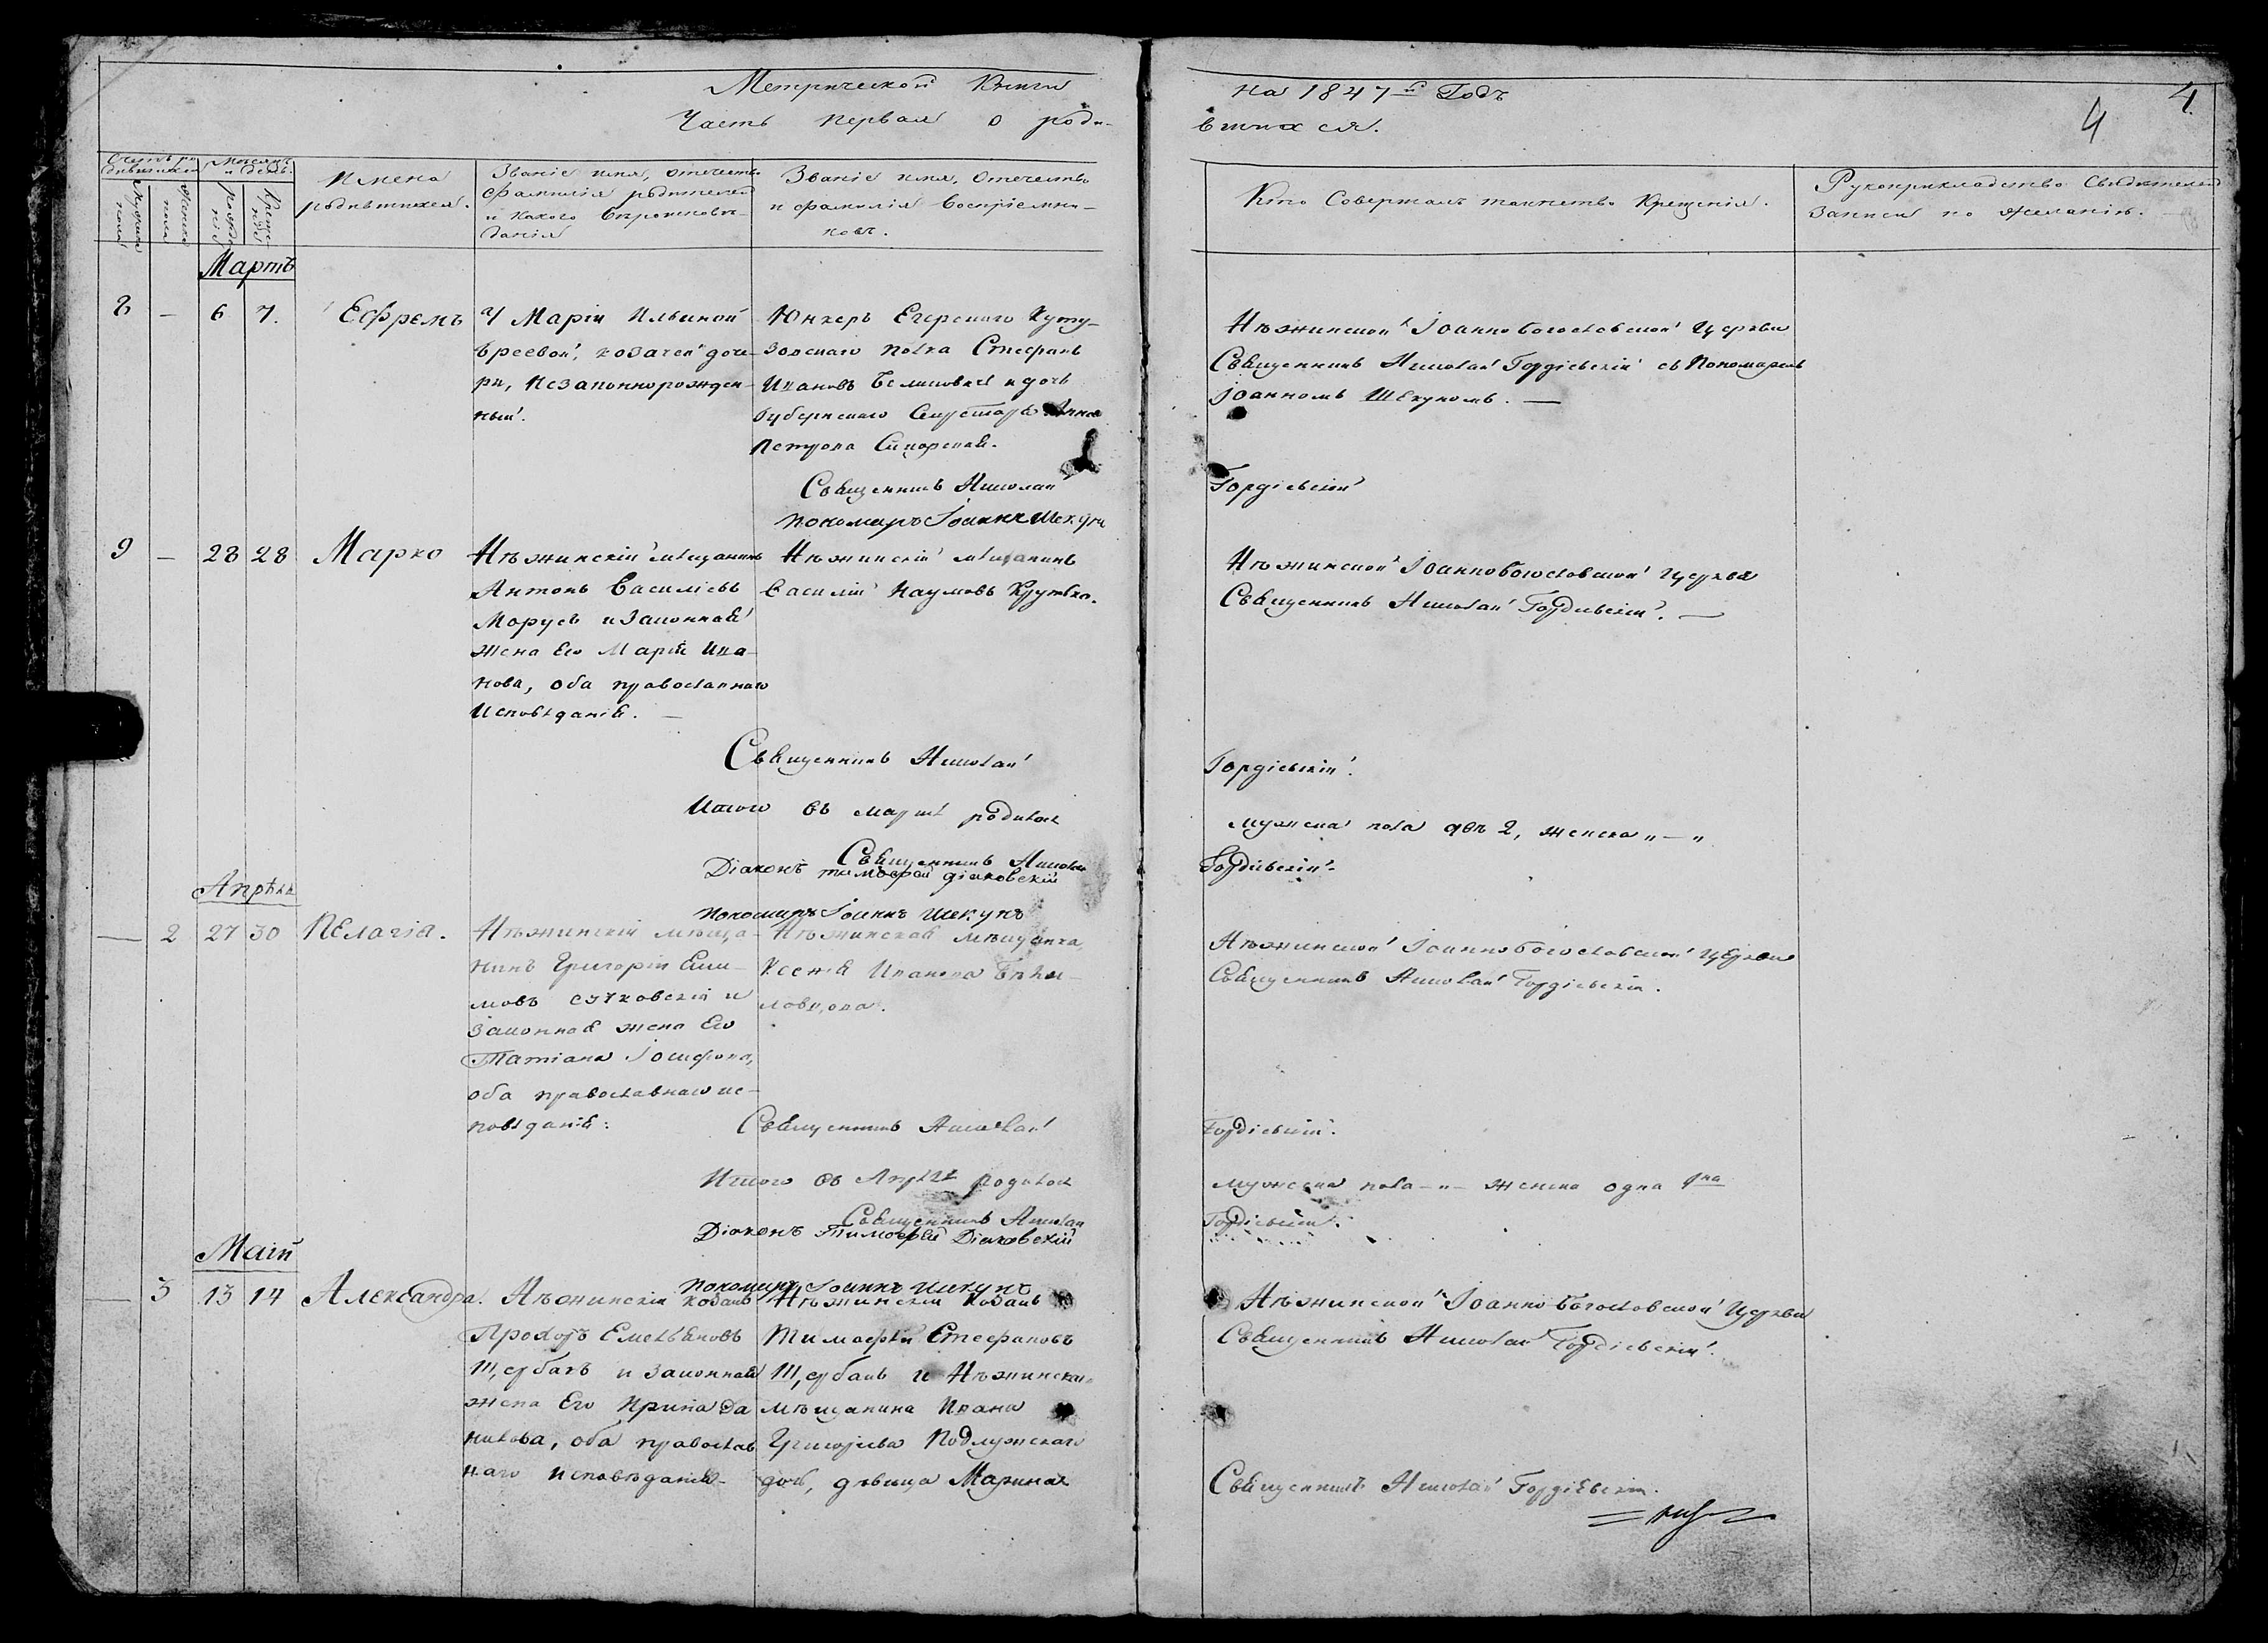 Метрической Книги
на 1847й Годъ
4
4.
Часть первая о роди-
вшихся.
Счетъ ро
дившихся
Мѣсяцъ
и день.
Мужеска
пола
Женска
пола
рожде
нія
Креще
нія
Имена
родившихся.
Званіе имя, отечество
фамилія родителей
и какого вѣроиспове-
данія
Званіе имя, Отечество
и фамилія воспріемни-
ковъ.
Кто Совершалъ таинство Крещенія.
Рукоприкладство Свидетелей
записи по желанію.
Мартъ
8 — 6 7. Ефремъ
У Маріи Ильиной
козачей доче-
ри, незаконнорожден-
ный.
Юнкеръ Егерского Куту-
зовскаго полка Стефанъ
Ивановъ и дочь
Губернскаго Секретаря Анна
Петрова Сикорская.
Нѣжинской Іоанно Богословской Церкви
Священникъ Николай Гордіевскій съ Пономаремъ
Іоанномъ Шекуномъ. —
Священникъ Николай
Гордіевскій
Пономарь Іоаннъ Шекунъ
9 — 28 28 Марко
Нѣжинскій мѣщанинъ
Антонъ Василіевъ
Морусъ и законная
жена Его Марія Ива-
нова, оба православнаго
Исповѣданія. —
Нѣжинскій мѣщанинъ
Василій Наумовъ Крутько.
Нѣжинской Іоанно Богословской Церкви
Священникъ Николай Гордіевскій. —
Священникъ Николай
Гордіевскій.
Итого въ мартѣ родилось
мужеска пола два 2, женска „ — „
Священникъ Николай
Гордіевскій.
Діаконъ Тимофей Діаковскій
Пономарь Іоаннъ Шекунъ
Апрѣль
— 2 27 30 Пелагія.
Нѣжинскій мѣща-
нинъ Григорій Ели-
мовъ и
законная жена Его
Татіана Іосифова,
оба православнаго ис-
повѣданія:
Нѣжинская мѣщанка
Ксенія Иванова
Нѣжинской Іоанно Богословской Церкви
Священникъ Николай Гордіевскій.
Священникъ Николай
Гордіевскій.
Итого въ Апрѣлѣ родилось
мужеска пола — „ — женска одна 1на
Священникъ Николай
Гордіевскій.
Діаконъ Тимофей Діаковскій
Пономарь Іоаннъ Шекунъ
Маій
— 3 13 14 Александра.
Нѣжинскій козакъ
Прохоръ Емельяновъ
Щербакъ и законная
жена Его Ирина Да
нилова, оба православ
наго исповѣданія.
Нѣжинскій козакъ
Тимофей Стефановъ
Щербакъ и Нѣжинскаго
мѣщанина Ивана
Григорьева Подлужскаго
дочь, дѣвица Марина
Нѣжинской Іоанно Богословской Церкви
Священникъ Николай Гордіевскій.
Священникъ Николай Гордіевскій.